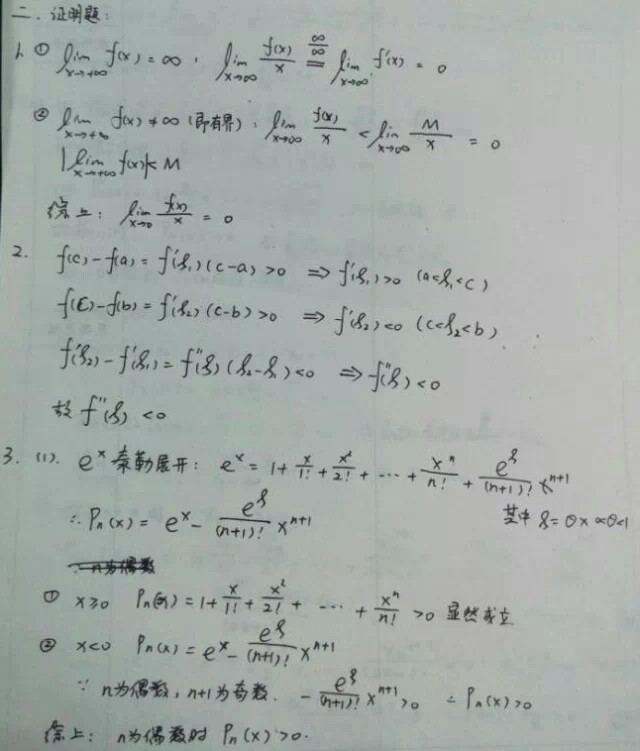 二. 证明题:
1. ① lim_{x→+∞} f(x) = ∞, lim_{x→∞} f(x)/x =(∞/∞) lim_{x→∞} f'(x) = 0
② lim_{x→+∞} f(x) ≠ ∞ (即有界), lim_{x→∞} f(x)/x < lim_{x→∞} M/x = 0
|lim_{x→+∞} f(x)|< M
综上: lim_{x→0} f(x)/x = 0
2. f(c) - f(a) = f'(ξ₁)(c-a) > 0 ⇒ f'(ξ₁) > 0 (a<ξ₁<c)
f(c) - f(b) = f'(ξ₂)(c-b) > 0 ⇒ f'(ξ₂) < 0 (c<ξ₂<b)
f'(ξ₂) - f'(ξ₁) = f''(ξ)(ξ₂-ξ₁) < 0 ⇒ f''(ξ) < 0
故 f''(ξ) < 0
3. (1). e^x 泰勒展开: e^x = 1 + x/1! + x²/2! + ⋯ + x^n/n! + e^ξ/(n+1)! x^{n+1}
∴ Pn(x) = e^x - e^ξ/(n+1)! x^{n+1} 其中 ξ = θx 0<θ<1
∵ n为偶数
① x≥0 Pn(x) = 1 + x/1! + x²/2! + ⋯ + x^n/n! > 0 显然成立
② x<0 Pn(x) = e^x - e^ξ/(n+1)! x^{n+1}
∵ n为偶数, n+1为奇数. - e^ξ/(n+1)! x^{n+1} > 0 ∴ Pn(x) > 0
综上: n为偶数时 Pn(x) > 0.